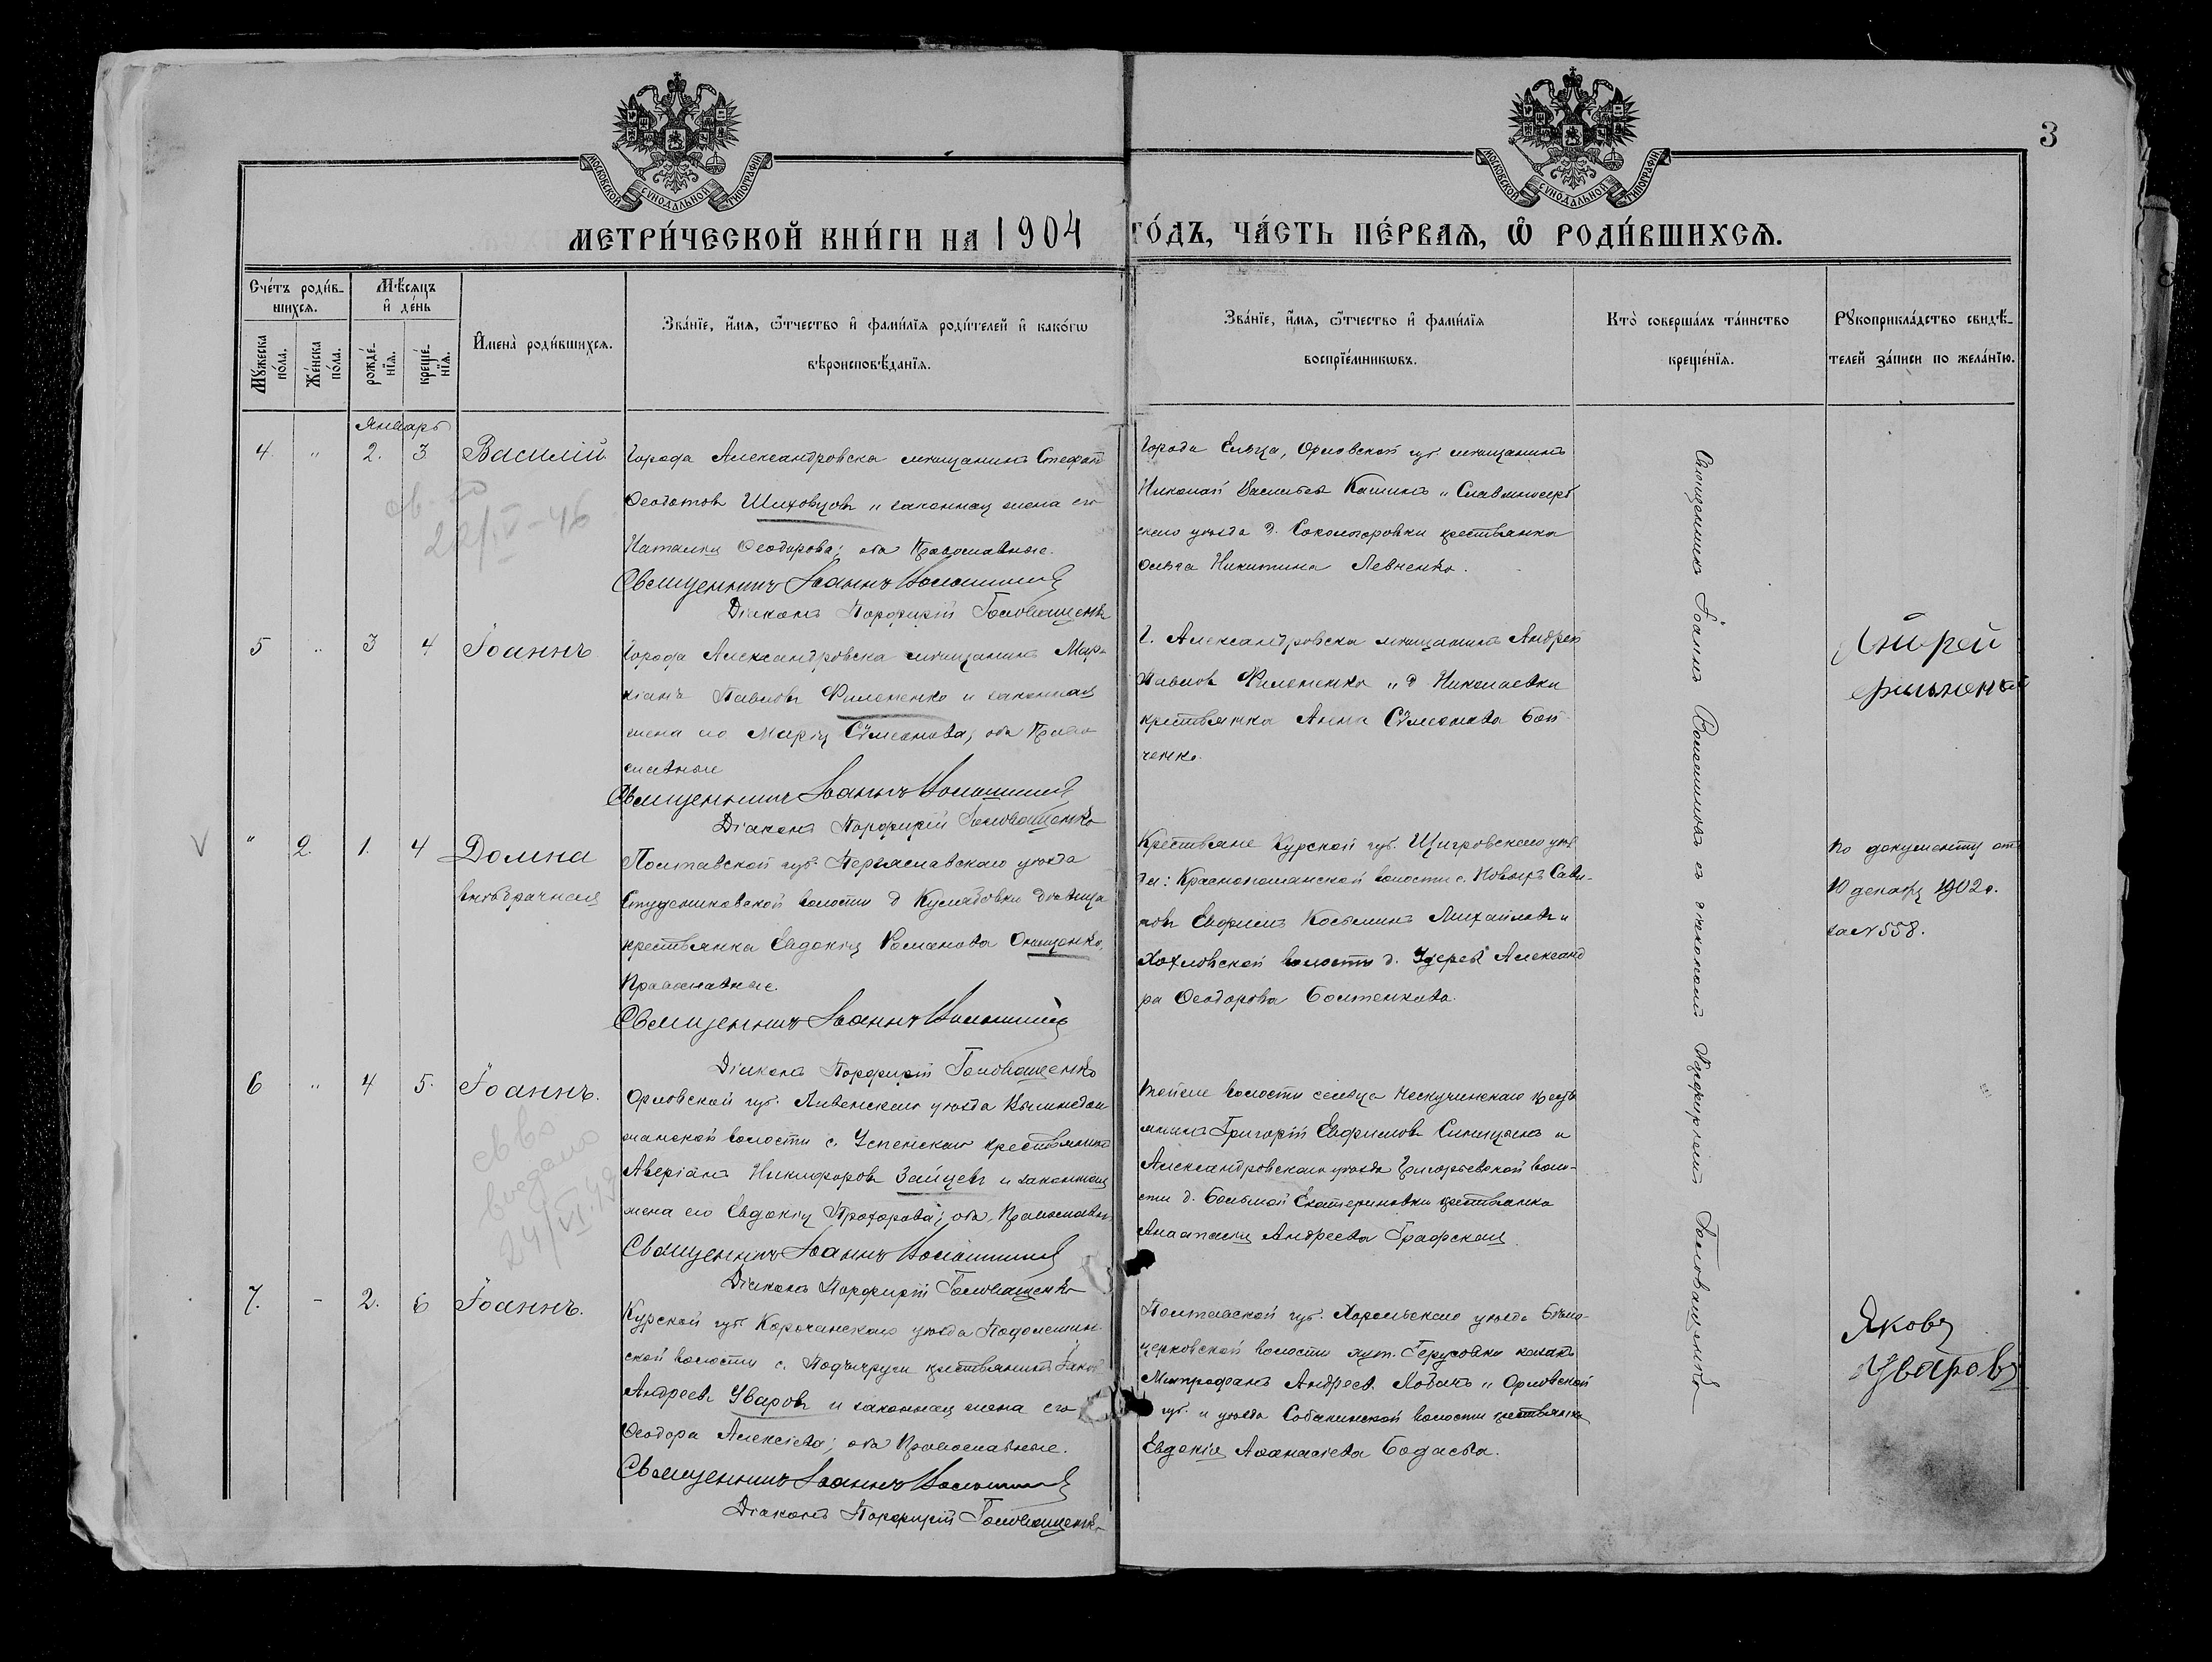 3
МОСКОВСКОЙ СѴНОДАЛЬНОЙ ТИПОГРАФІИ
МОСКОВСКОЙ СѴНОДАЛЬНОЙ ТИПОГРАФІИ
МЕТРИ́ЧЕСКОЙ КНИ́ГИ НА 1904 ГО́ДЪ, ЧА́СТЬ ПЕ́РВАѦ, Ѡ РОДИ́ВШИХСѦ.
Сче́тъ роди́в-
шихсѧ.
Мꙋ́жеска по́ла.
Же́нска по́ла.
Мѣ́сѧцъ
и҆ де́нь
рожде́нїѧ.
креще́нїѧ.
И҆мена̀ роди́вшихсѧ.
Зва́нїе, и҆́мѧ, ѻ҆́тчество и҆ фами́лїѧ роди́телей и҆ како́гѡ
вѣроисповѣ́данїѧ.
Зва́нїе, и҆́мѧ, ѻ҆́тчество и҆ фами́лїѧ
воспрїе́мникѡвъ.
Кто̀ соверша́лъ та́инство
креще́нїѧ.
Рꙋкоприкла́дство свидѣ́-
телей за́писи по жела́нїю.
Январь
4. " 2. 3 Василій
Города Александровска мѣщанинъ Стефанъ
Ѳеодотовъ Шиховцовъ и законная жена его
Наталия Ѳеодорова; оба Православные.
Священникъ Іоаннъ Волошиновъ
Діаконъ Порфирій Головащенко
Города Ельца, Орловской губ. мѣщанинъ
Николай Васильевъ Кашинъ и Славяносерб
скаго уѣзда д. Сокологоровки крестьянка
Ольга Никитина Левченко.
22/IV-46
5 " 3 4 Іоаннъ
Города Александровска мѣщанинъ Мар-
кіанъ Павловъ Филоненко и законная
жена его Марія Сѵмеонова; оба Право
славные
Священникъ Іоаннъ Волошиновъ
Діаконъ Порфирій Головащенко
Г. Александровска мѣщанинъ Андрей
Павловъ Филоненко и д Николаевки
крестьянка Анна Сѵмеонова Бой
ченко.
Андрей
Филоненко
V " 2. 1. 4 Домна
внѣбрачная
Полтавской губ. Переяславскаго уѣзда
Студениковской волости д дѣвица
крестьянка Евдокія Романова Онищенко,
Православные.
Священникъ Іоаннъ Волошиновъ
Діаконъ Порфирій Головащенко
Крестьяне Курской губ. Щигровскаго уѣз
да: Краснополянской волости с. Новыхъ Сави-
новъ Косьминъ Михайловъ и
Хохловской волости д. Александ
ра Ѳеодорова Болтенкова.
По документу отъ
10 декабр 1902 г.
за № 558.
6 " 4 5. Іоаннъ.
Орловской губ. Ливенскаго уѣзда
волости с. Успенскаго крестьянинъ
Аверіанъ Никифоровъ Зайцевъ и законная
жена его Евдокія Прохорова; оба Православн
Священникъ Іоаннъ Волошиновъ
Діаконъ Порфирій Головащенко
Тойже волости сельца Нескучинскаго крестья
нинъ Григорій Евфимовъ Синицынъ и
Александровскаго уѣзда Григорьевской воло-
сти д. Большой Екатериновки крестьянка
Анастасія Андреева Графская.
св во
выдано
24/VI.49
7. - 2. 6 Іоаннъ.
Курской губ Корочанскаго уѣзда
ской волости с. крестьянинъ Іаковъ
Андреевъ Уваровъ и законная жена его
Ѳеодора Алексіева; оба Православные.
Священникъ Іоаннъ Волошиновъ
Діаконъ Порфирій Головащенко
Полтавской губ. Хорольскаго уѣзда Бѣло-
церковской волости хут. Герусовки козакъ
Митрофанъ Андреевъ Лобачъ и Орловской
губ. и уѣзда Собакинской волости крестьянка
Евдокія Аѳанасіева
Яковъ
Уваровъ
Священникъ Іоаннъ Волошиновъ съ діакономъ Порфиріемъ Головащенко